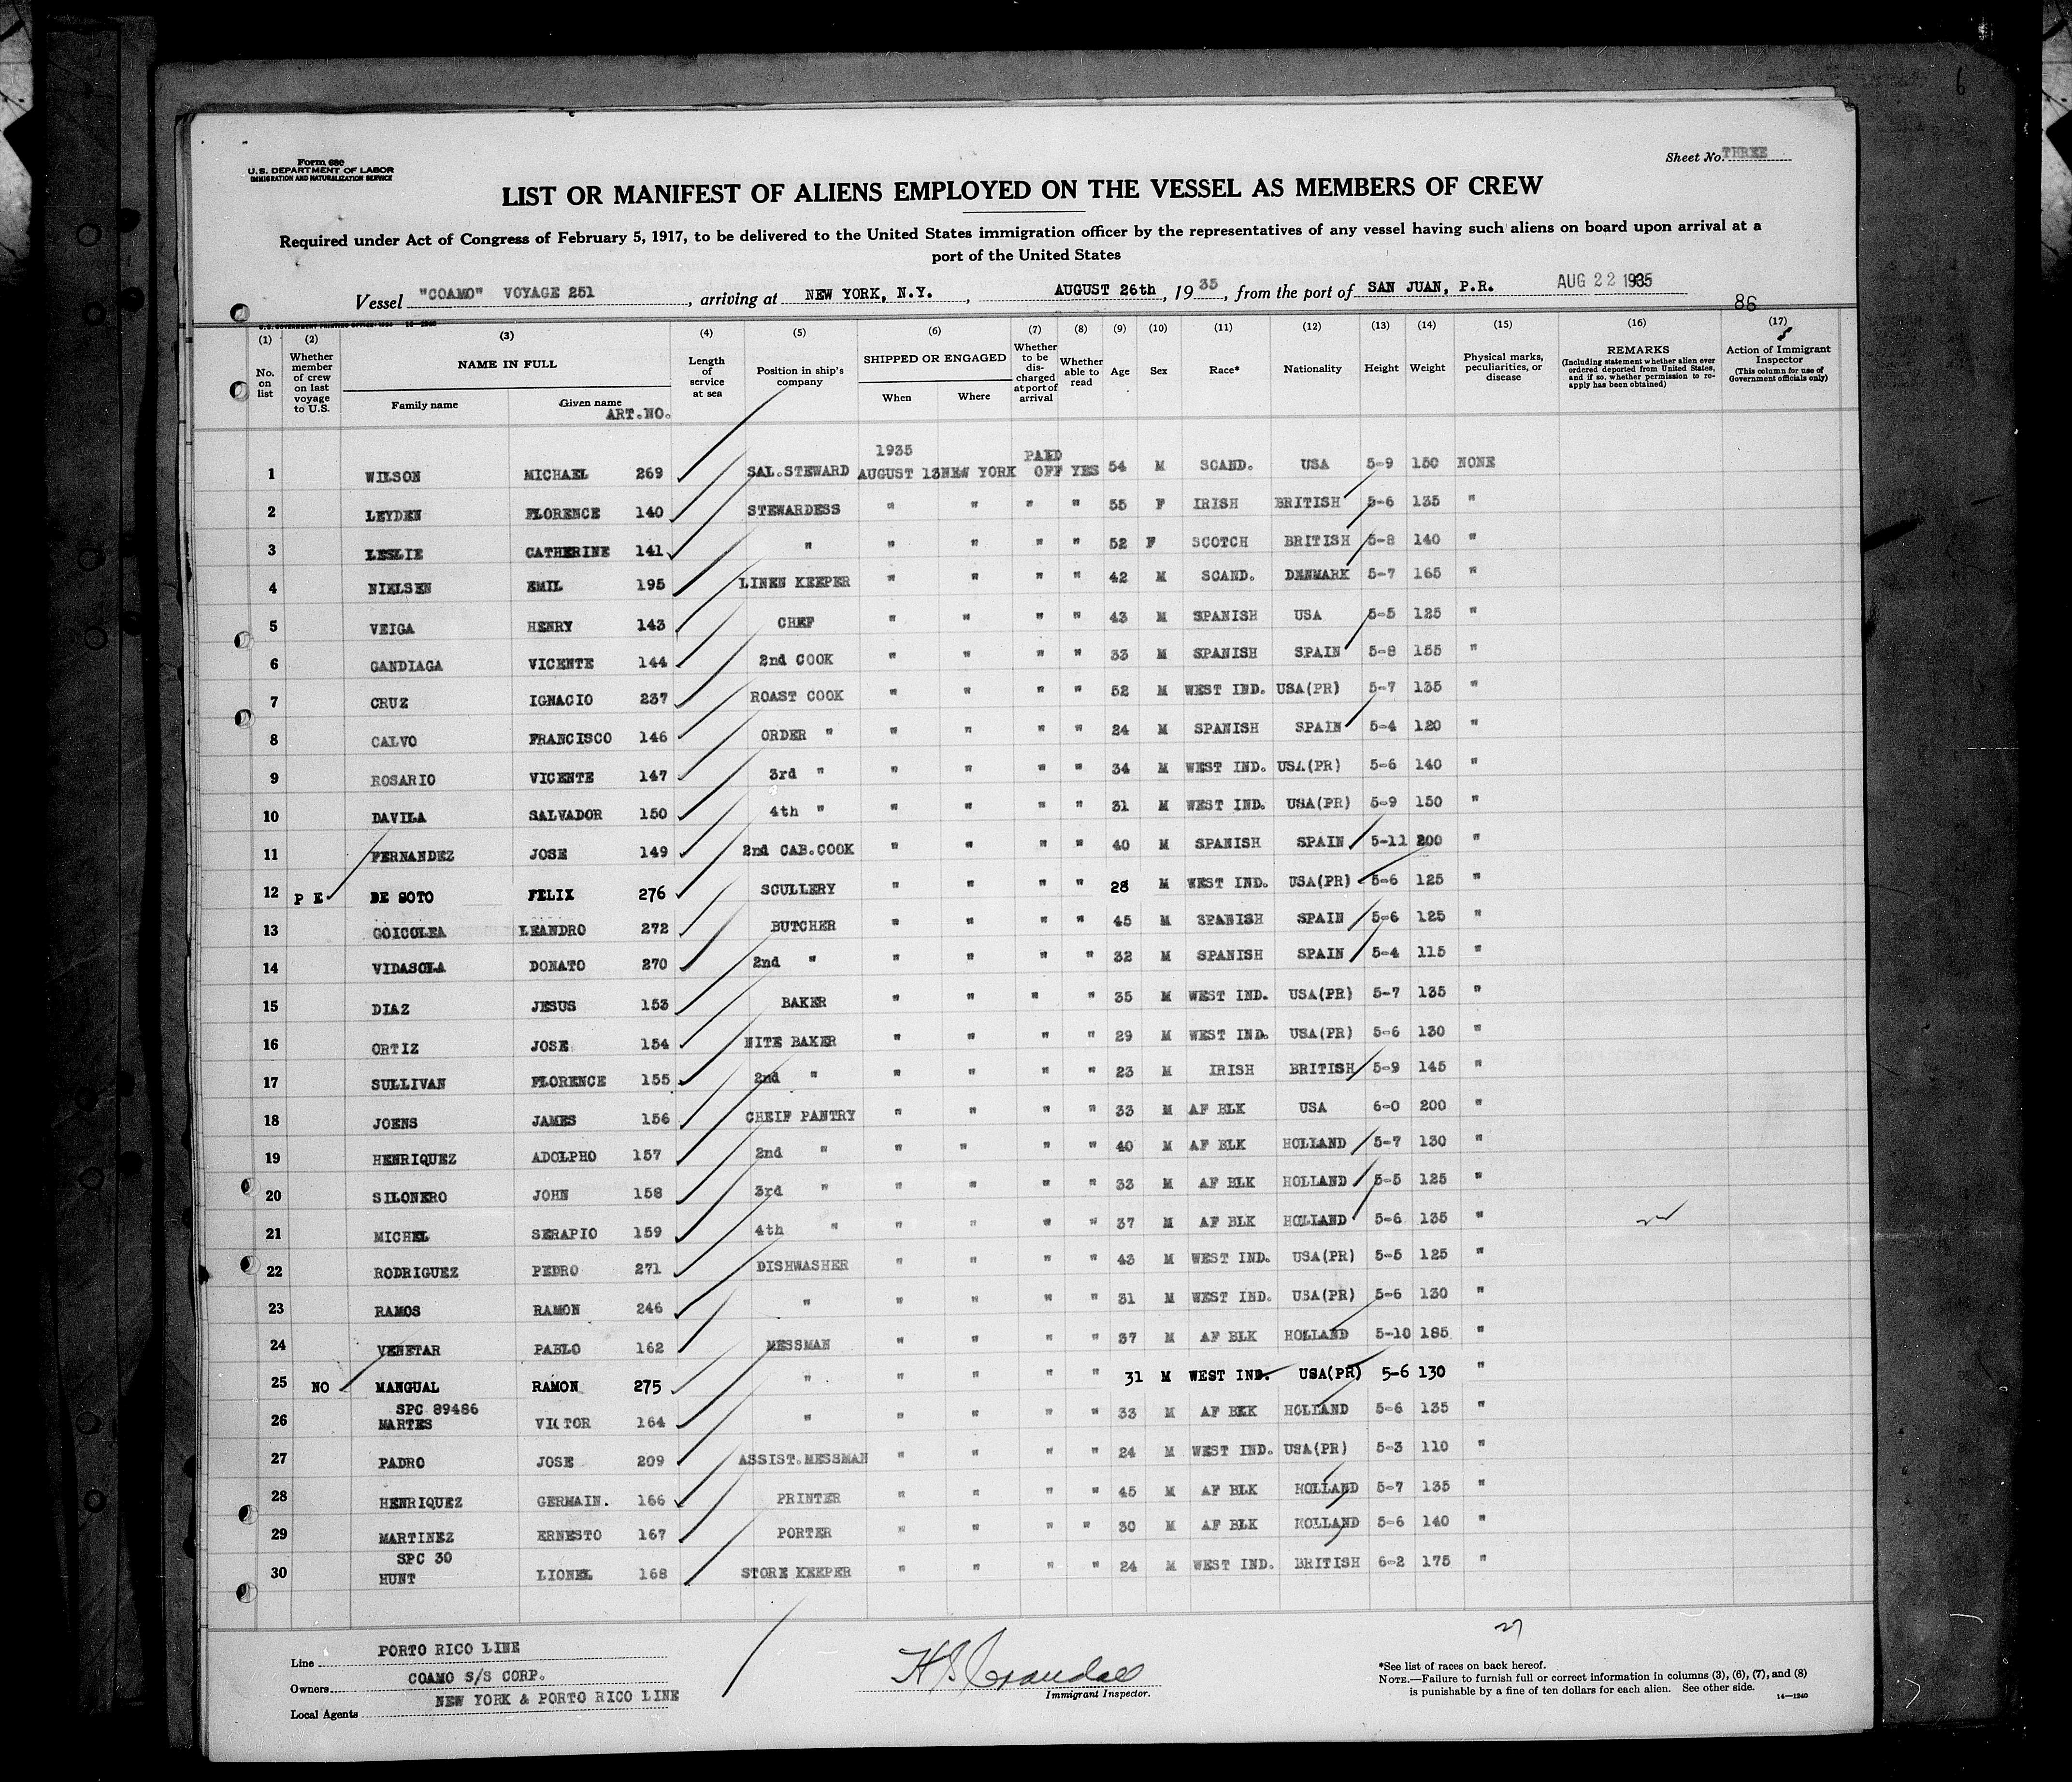 6
Form 680
U.S. DEPARTMENT OF LABOR
IMMIGRATION AND NATURALIZATION SERVICE
Sheet No. THREE
LIST OR MANIFEST OF ALIENS EMPLOYED ON THE VESSEL AS MEMBERS OF CREW
Required under Act of Congress of February 5, 1917, to be delivered to the United States immigration officer by the representatives of any vessel having such aliens on board upon arrival at a
port of the United States
Vessel "COAMO" VOYAGE 251, arriving at NEW YORK, N.Y., AUGUST 26th, 1935, from the port of SAN JUAN, P.R. AUG 22 1935
86
(1) No. on list
(2) Whether member of crew on last voyage to U.S.
(3) NAME IN FULL
Family name
Given name
ART.NO.
(4) Length of service at sea
(5) Position in ship's company
(6) SHIPPED OR ENGAGED
When
Where
(7) Whether to be discharged at port of arrival
(8) Whether able to read
(9) Age
(10) Sex
(11) Race*
(12) Nationality
(13) Height
(14) Weight
(15) Physical marks, peculiarities, or disease
(16) REMARKS
(Including statement whether alien ever ordered deported from United States, and if so, whether permission to reapply has been obtained)
(17) Action of Immigrant Inspector
(This column for use of Government officials only)
1935 PAID
1 WILSON MICHAEL 269 SAL.STEWARD AUGUST 13 NEW YORK OFF YES 54 M SCAND. USA 5-9 150 NONE
2 LEYDEN FLORENCE 140 STEWARDESS " " " " 55 F IRISH BRITISH 5-6 135 "
3 LESLIE CATHERINE 141 " " " " " 52 F SCOTCH BRITISH 5-8 140 "
4 NIELSEN EMIL 195 LINEN KEEPER " " " " 42 M SCAND. DENMARK 5-7 165 "
5 VEIGA HENRY 143 CHEF " " " " 43 M SPANISH USA 5-5 125 "
6 GANDIAGA VICENTE 144 2nd COOK " " " " 33 M SPANISH SPAIN 5-8 155 "
7 CRUZ IGNACIO 237 ROAST COOK " " " " 52 M WEST IND. USA(PR) 5-7 135 "
8 CALVO FRANCISCO 146 ORDER " " " " " 24 M SPANISH SPAIN 5-4 120 "
9 ROSARIO VICENTE 147 3rd " " " " " 34 M WEST IND. USA(PR) 5-6 140 "
10 DAVILA SALVADOR 150 4th " " " " " 31 M WEST IND. USA(PR) 5-9 150 "
11 FERNANDEZ JOSE 149 2nd CAB.COOK " " " " 40 M SPANISH SPAIN 5-11 200 "
12 P E DE SOTO FELIX 276 SCULLERY " " " " 28 M WEST IND. USA(PR) 5-6 125 "
13 GOICOLEA LEANDRO 272 BUTCHER " " " " 45 M SPANISH SPAIN 5-6 125 "
14 VIDASOLA DONATO 270 2nd " " " " " 32 M SPANISH SPAIN 5-4 115 "
15 DIAZ JESUS 153 BAKER " " " " 35 M WEST IND. USA(PR) 5-7 135 "
16 ORTIZ JOSE 154 NITE BAKER " " " " 29 M WEST IND. USA(PR) 5-6 130 "
17 SULLIVAN FLORENCE 155 2nd " " " " " 23 M IRISH BRITISH 5-9 145 "
18 JOENS JAMES 156 CHEIF PANTRY " " " " 33 M AF BLK USA 6-0 200 "
19 HENRIQUEZ ADOLPHO 157 2nd " " " " " 40 M AF BLK HOLLAND 5-7 130 "
20 SILONERO JOHN 158 3rd " " " " " 33 M AF BLK HOLLAND 5-5 125 "
21 MICHEL SERAPIO 159 4th " " " " " 37 M AF BLK HOLLAND 5-6 135 "
22 RODRIGUEZ PEDRO 271 DISHWASHER " " " " 43 M WEST IND. USA(PR) 5-5 125 "
23 RAMOS RAMON 246 " " " " " 31 M WEST IND. USA(PR) 5-6 130 "
24 VENETAR PABLO 162 MESSMAN " " " " 37 M AF BLK HOLLAND 5-10 185 "
25 NO MANGUAL RAMON 275 " " " " " 31 M WEST IND. USA(PR) 5-6 130 "
SPC 89486
26 MARTES VICTOR 164 " " " " " 33 M AF BLK HOLLAND 5-6 135 "
27 PADRO JOSE 209 ASSIST.MESSMAN " " " " 24 M WEST IND. USA(PR) 5-3 110 "
28 HENRIQUEZ GERMAIN. 166 PRINTER " " " " 45 M AF BLK HOLLAND 5-7 135 "
29 MARTINEZ ERNESTO 167 PORTER " " " " 30 M AF BLK HOLLAND 5-6 140 "
SPC 30
30 HUNT LIONEL 168 STORE KEEPER " " " " 24 M WEST IND. BRITISH 6-2 175 "
27
Line PORTO RICO LINE
Owners COAMO S/S CORP.
Local Agents NEW YORK & PORTO RICO LINE
H S Crandall
Immigrant Inspector.
*See list of races on back hereof.
NOTE.—Failure to furnish full or correct information in columns (3), (6), (7), and (8)
is punishable by a fine of ten dollars for each alien. See other side.
14—1240